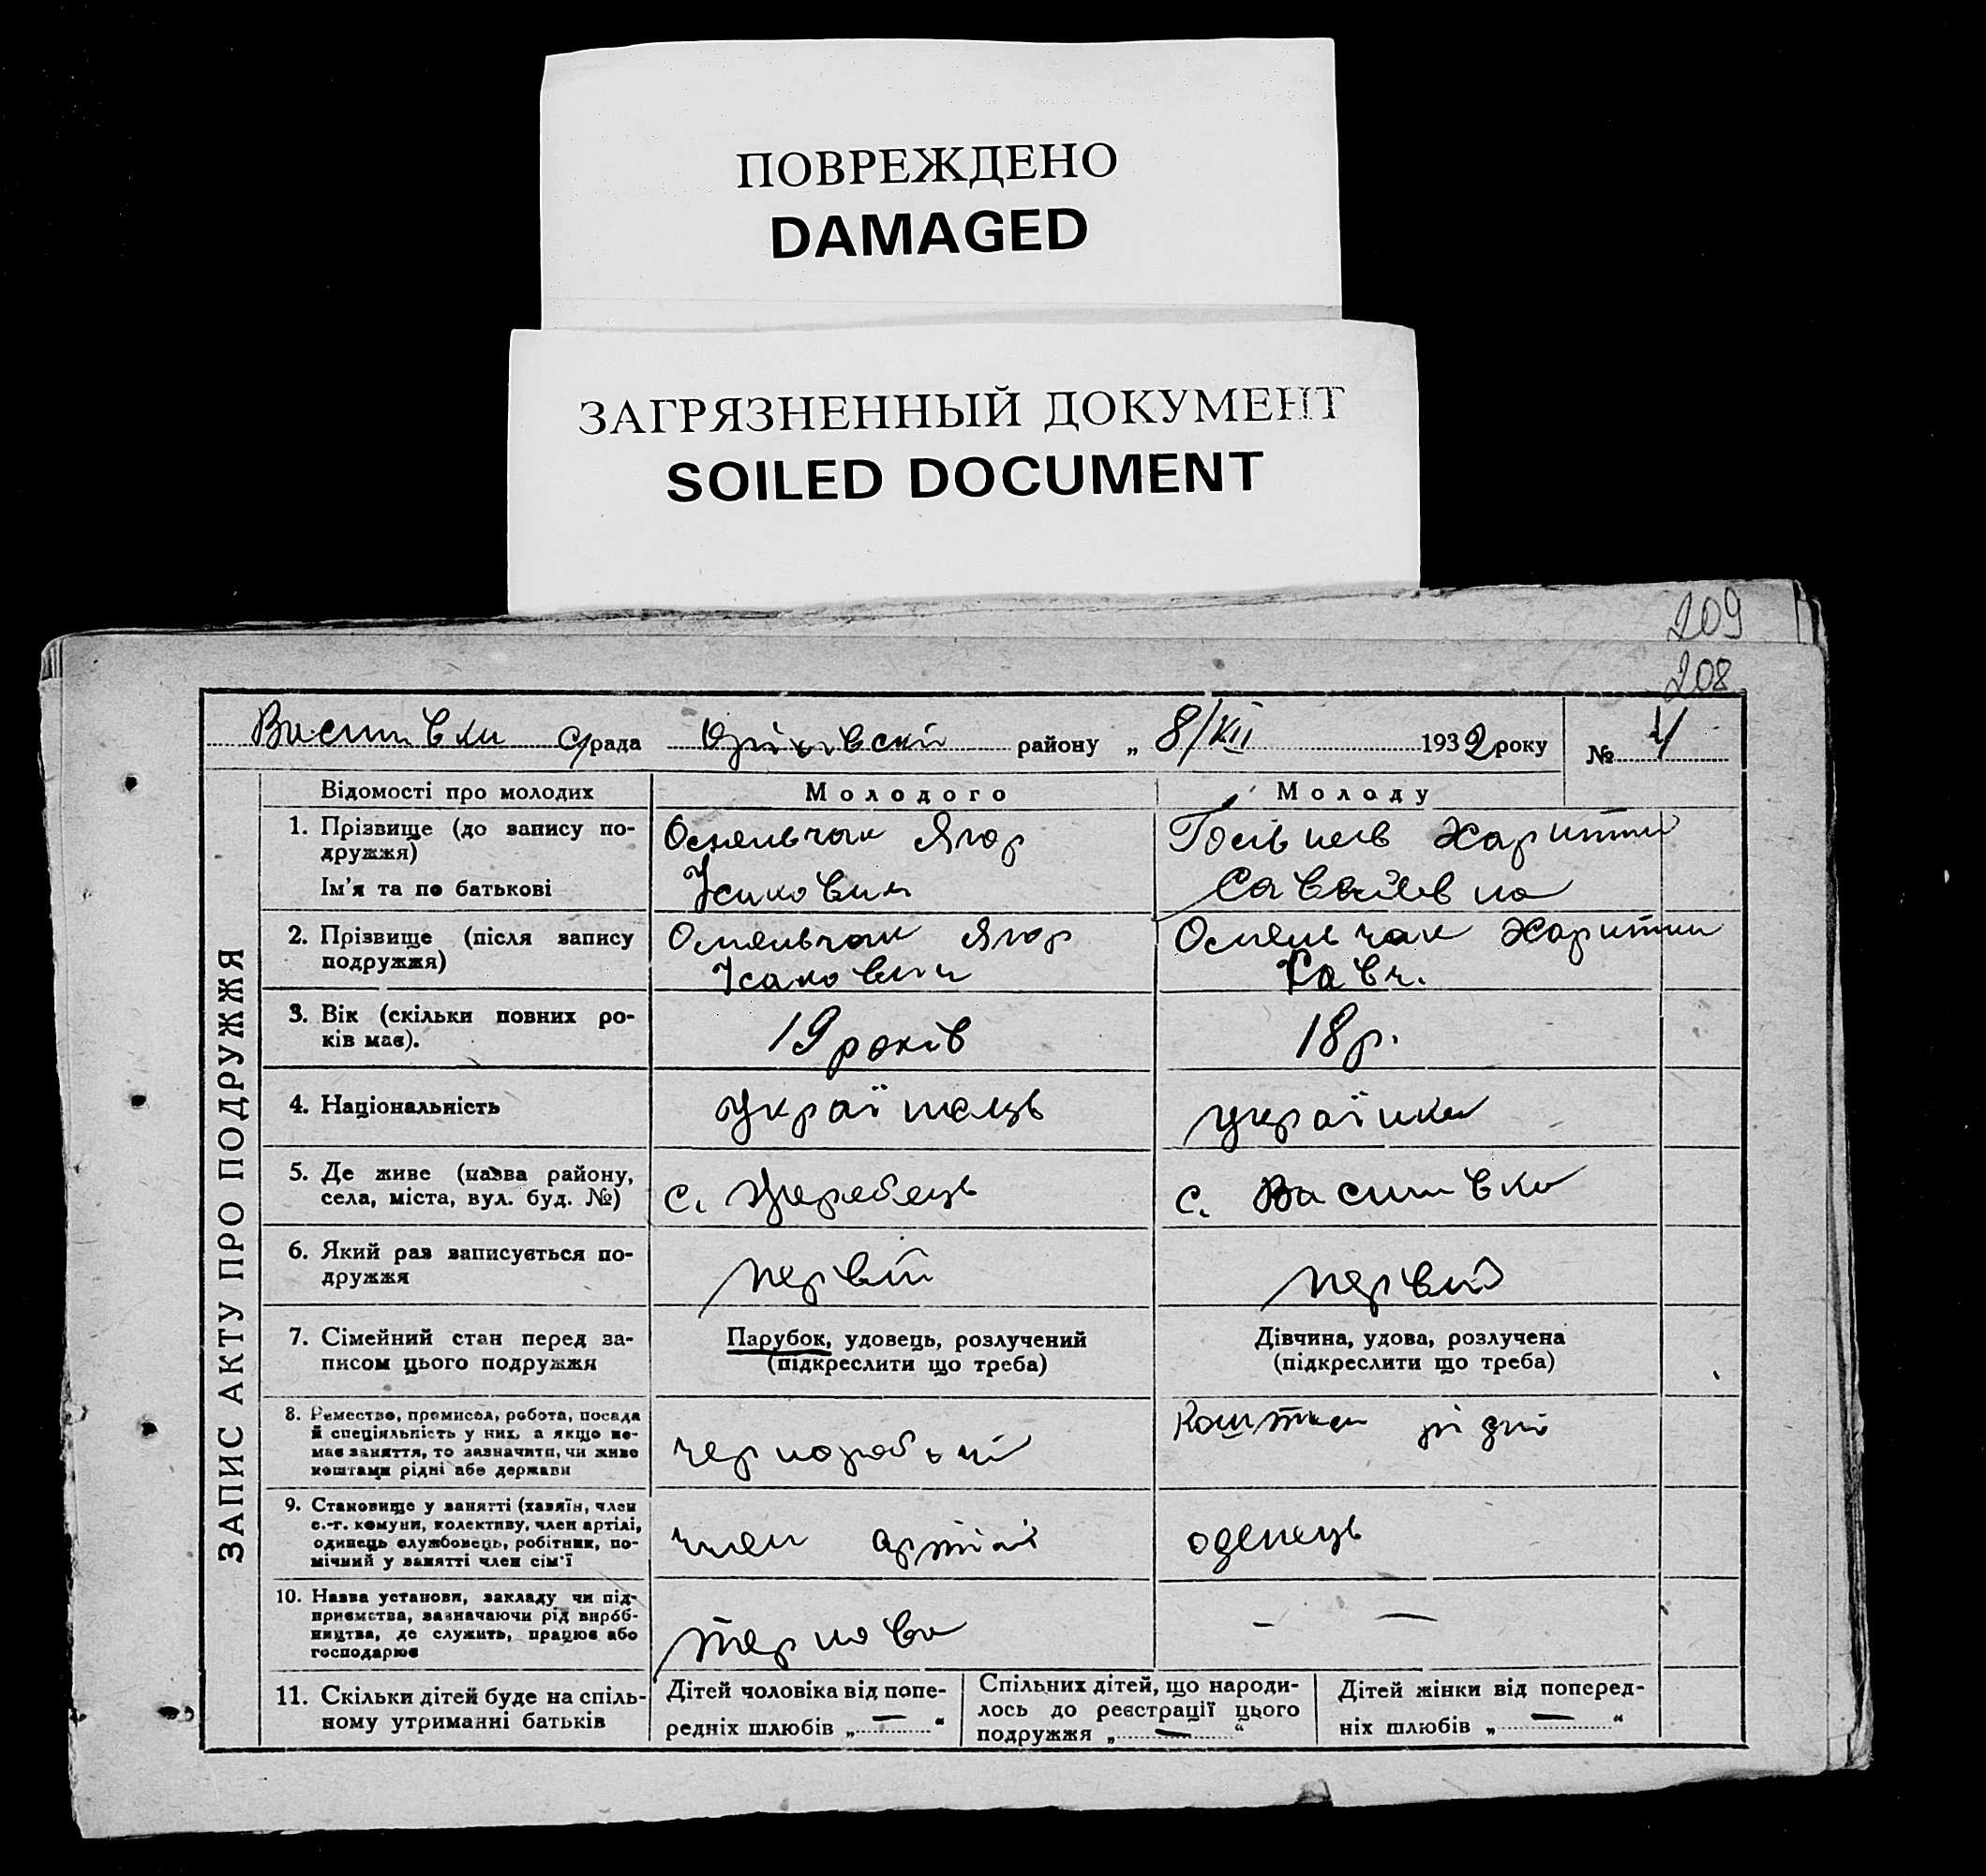 ПОВРЕЖДЕНО
DAMAGED
ЗАГРЯЗНЕННЫЙ ДОКУМЕНТ
SOILED DOCUMENT
209
208
с/рада району „ 8/XII 1932 року № 4
ЗАПИС АКТУ ПРО ПОДРУЖЖЯ
Відомості про молодих
Молодого
Молоду
1. Прізвище (до запису по-
дружжя)
Ім'я та по батькові
Ягор
Харитина
2. Прізвище (після запису
подружжя)
Ягор
Харитина
Савч.
3. Вік (скільки повних ро-
ків має).
19 років
18 р.
4. Національність
українець
українка
5. Де живе (назва району,
села, міста, вул. буд. №)
с. Жеребець
с. Василівка
6. Який раз записується по-
дружжя
первий
первий
7. Сімейний стан перед за-
писом цього подружжя
Парубок, удовець, розлучений
(підкреслити що треба)
Дівчина, удова, розлучена
(підкреслити що треба)
8. Ремество, промисел, робота, посада
й спеціяльність у них, а якщо не-
має заняття, то зазначити, чи живе
коштами рідні або держави
чорноробочий
Кошти рідні
9. Становище у занятті (хазяїн, член
с.-г. комуни, колективу, член артілі,
одинець службовець, робітник, по-
мічний у занятті член сім'ї
член артілі
оденець
10. Назва установи, закладу чи під-
приємства, зазначаючи рід вироб-
ництва, де служить, працює або
господарює
— —
11. Скільки дітей буде на спіль-
ному утриманні батьків
Дітей чоловіка від попе-
редніх шлюбів „ — “
Спільних дітей, що народи-
лось до реєстрації цього
подружжя „ — “
Дітей жінки від поперед-
ніх шлюбів „ — “